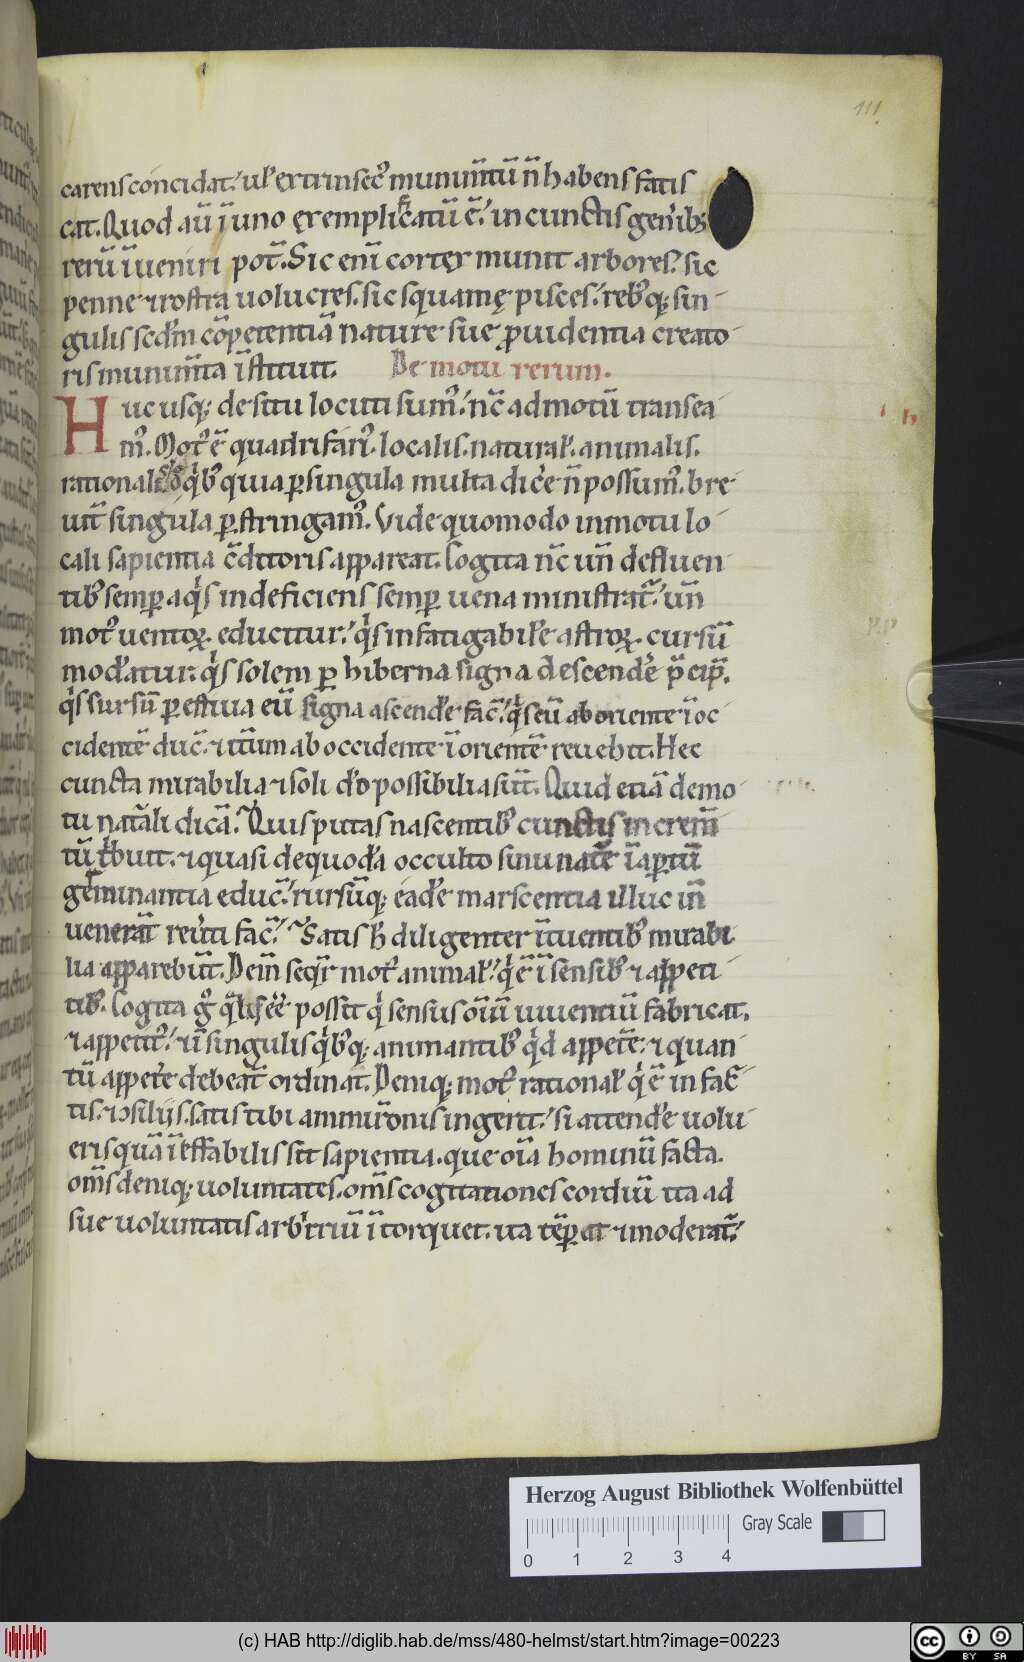 111
carens concidat.' ul' extrinsec' munim̄tū n̄ habens fatis
cat. Quod aū ī uno ęxemplificatū ē.' in cunctis gen'ib;
rerū īueniri pot̄. Sic eni cortex munit arbores.' sic
penne ⁊ rostra uolucres. sic squamę pisces.' reb'q; sin-
gulis scd'm cōpetentiā nature sue ꝓuidentia creato-
ris munim̄ta īstituit. De motu rerum.
Huc usq; de situ locuti sum'.' nc̄ ad motū transea-
m'. Mot' ē quadrifari'. localis. natural'. animalis.
rational' q'b' quia ꝑ singula multa dic'e n̄ possum'. bre-
uit̄ singula ꝑstringam'. Vide quomodo in motu lo-
cali sapientia c̄ditoris appareat. Cogita nc̄ un̄ defluen-
tib' semꝑ aq's indeficiens semꝑ uena ministrat̄.' un̄
mot' uentoꝝ educitur.' q's infatigabil'e astroꝝ cursū
mod'atur. q's solem ꝑ hiberna signa descend'e p̄cip̄.
q's sursū ꝑ estiua eū signa ascend'e fac̄.' q's eū ab oriente ī oc-
cidentē duc̄. ⁊ it̄um ab occidente ī orientē reuehit. Hec
cuncta mirabilia ⁊ soli d'o possibilia sūt. Quid etiā de mo-
tu nat̄ali dicā. Quis putas nascentib' cunctis increm̄-
tū t'buit. ⁊ quasi de quod'a occulto sinu nat̄e ī aꝑtū
germinantia educ̄.' rursūq; ead'e marscentia illuc un̄
uenerāt reu'ti fac̄.' Satis h̄ diligenter ītuentib' mirabi-
lia apparebūt. Dein̄ seq'r mot' animal'.' q' ē ī sensib' ⁊ appeti-
tib'. Cogita possit q' sensus oīū uiuentiū fabricat.
⁊ appetit'.' ⁊ū singulis q'b'q; animantib' q'd appet̄e. ⁊ quan-
tū appet'e debeat̄ ordinat. Deniq; mot' rational' q' ē in fac-
tis. ⁊ ↄsiliis. satis tibi ammir̄onis ingerit.' si attend'e uolu-
eris quā īeffabilis sit sapientia. que oīa hominū facta.
om̄s deniq; uoluntates. om̄s cogitationes cordiū ita ad
sue uoluntatis arbitriū ītorquet. ita tēꝑat ⁊ moderat̄.'
Herzog August Bibliothek Wolfenbüttel
Gray Scale
0 1 2 3 4
(c) HAB http://diglib.hab.de/mss/480-helmst/start.htm?image=00223
cc BY SA